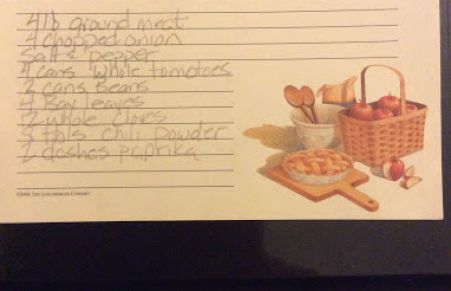 4 lb ground meat
4 chopped onion
Salt & pepper
4 cans whole tomotoes
2 cans Beans
4 Bay leaves
12 whole cloves
tbls chili powder
2 dashes paprika